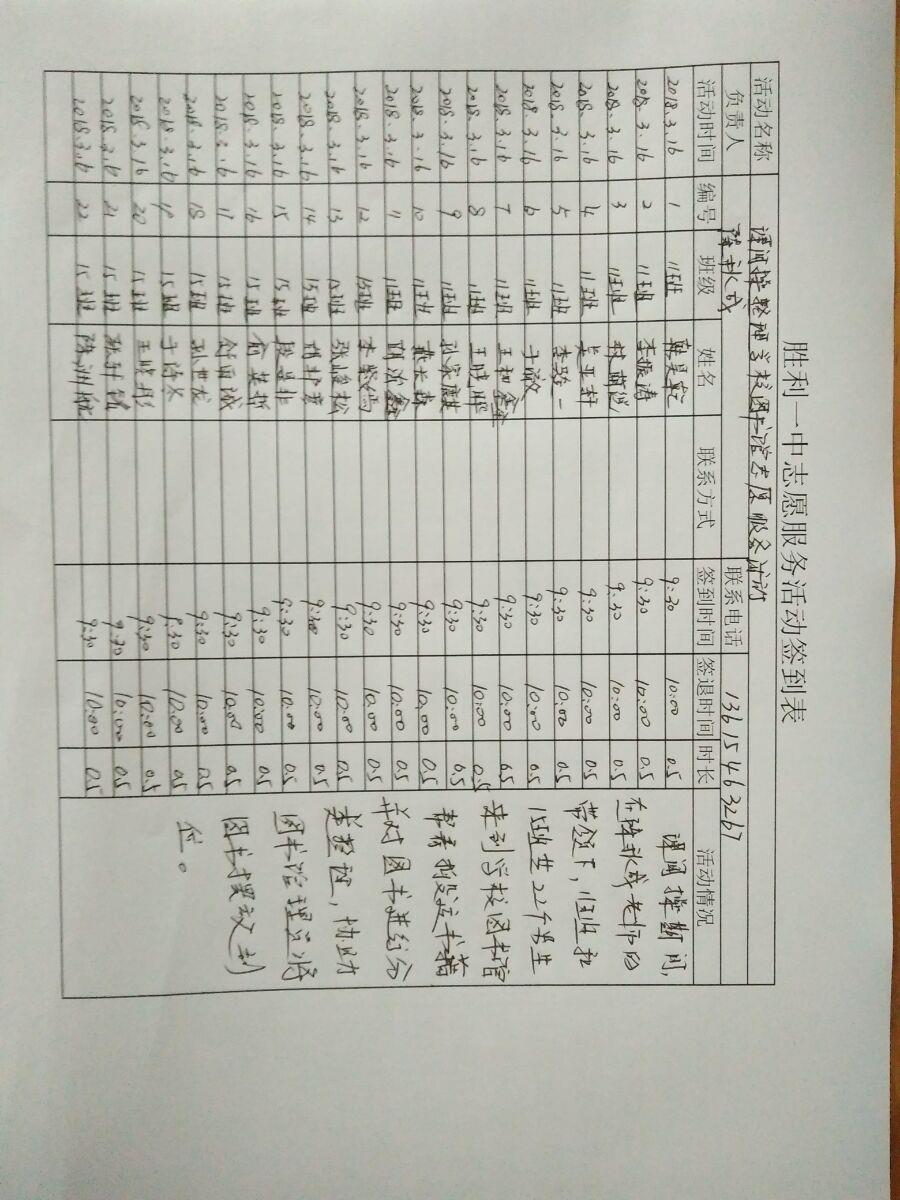 胜利一中志愿服务活动签到表
活动名称 课间操整理学校图书馆志愿服务活动
负责人 陈永成 联系电话 13615463267
活动时间 编号 班级 姓名 联系方式 签到时间 签退时间 时长 活动情况
2018.3.16 1 11班 9:30 10:00 0.5
2018.3.16 2 11班 李振涛 9:30 10:00 0.5
2018.3.16 3 11班 9:30 10:00 0.5
2018.3.16 4 11班 9:30 10:00 0.5
2018.3.16 5 11班 李骆一 9:30 10:00 0.5
2018.3.16 6 11班 于澈 9:30 10:00 0.5
2018.3.16 7 11班 王和鑫 9:30 10:00 0.5
2018.3.16 8 11班 王晓晖 9:30 10:00 0.5
2018.3.16 9 11班 孙家麒 9:30 10:00 0.5
2018.3.16 10 11班 9:30 10:00 0.5
2018.3.16 11 11班 9:30 10:00 0.5
2018.3.16 12 15班 9:30 10:00 0.5
2018.3.16 13 15班 张峻松 9:30 10:00 0.5
2018.3.16 14 15班 9:30 10:00 0.5
2018.3.16 15 15班 段昱非 9:30 10:00 0.5
2018.3.16 16 15班 俞英哲 9:30 10:00 0.5
2018.3.16 17 15班 9:30 10:00 0.5
2018.3.16 18 15班 孙世龙 9:30 10:00 0.5
2018.3.16 19 15班 9:30 10:00 0.5
2018.3.16 20 15班 王晓彤 9:30 10:00 0.5
2018.3.16 21 15班 耿轩铭 9:30 10:00 0.5
2018.3.16 22 15班 陈洲航 9:30 10:00 0.5
课间操期间,
在陈永成老师的
带领下,11班和
15班共22个学生
来到学校图书馆
帮着搬运书籍
并对图书进行分
类整理,协助
图书管理员将
图书摆放到
位。